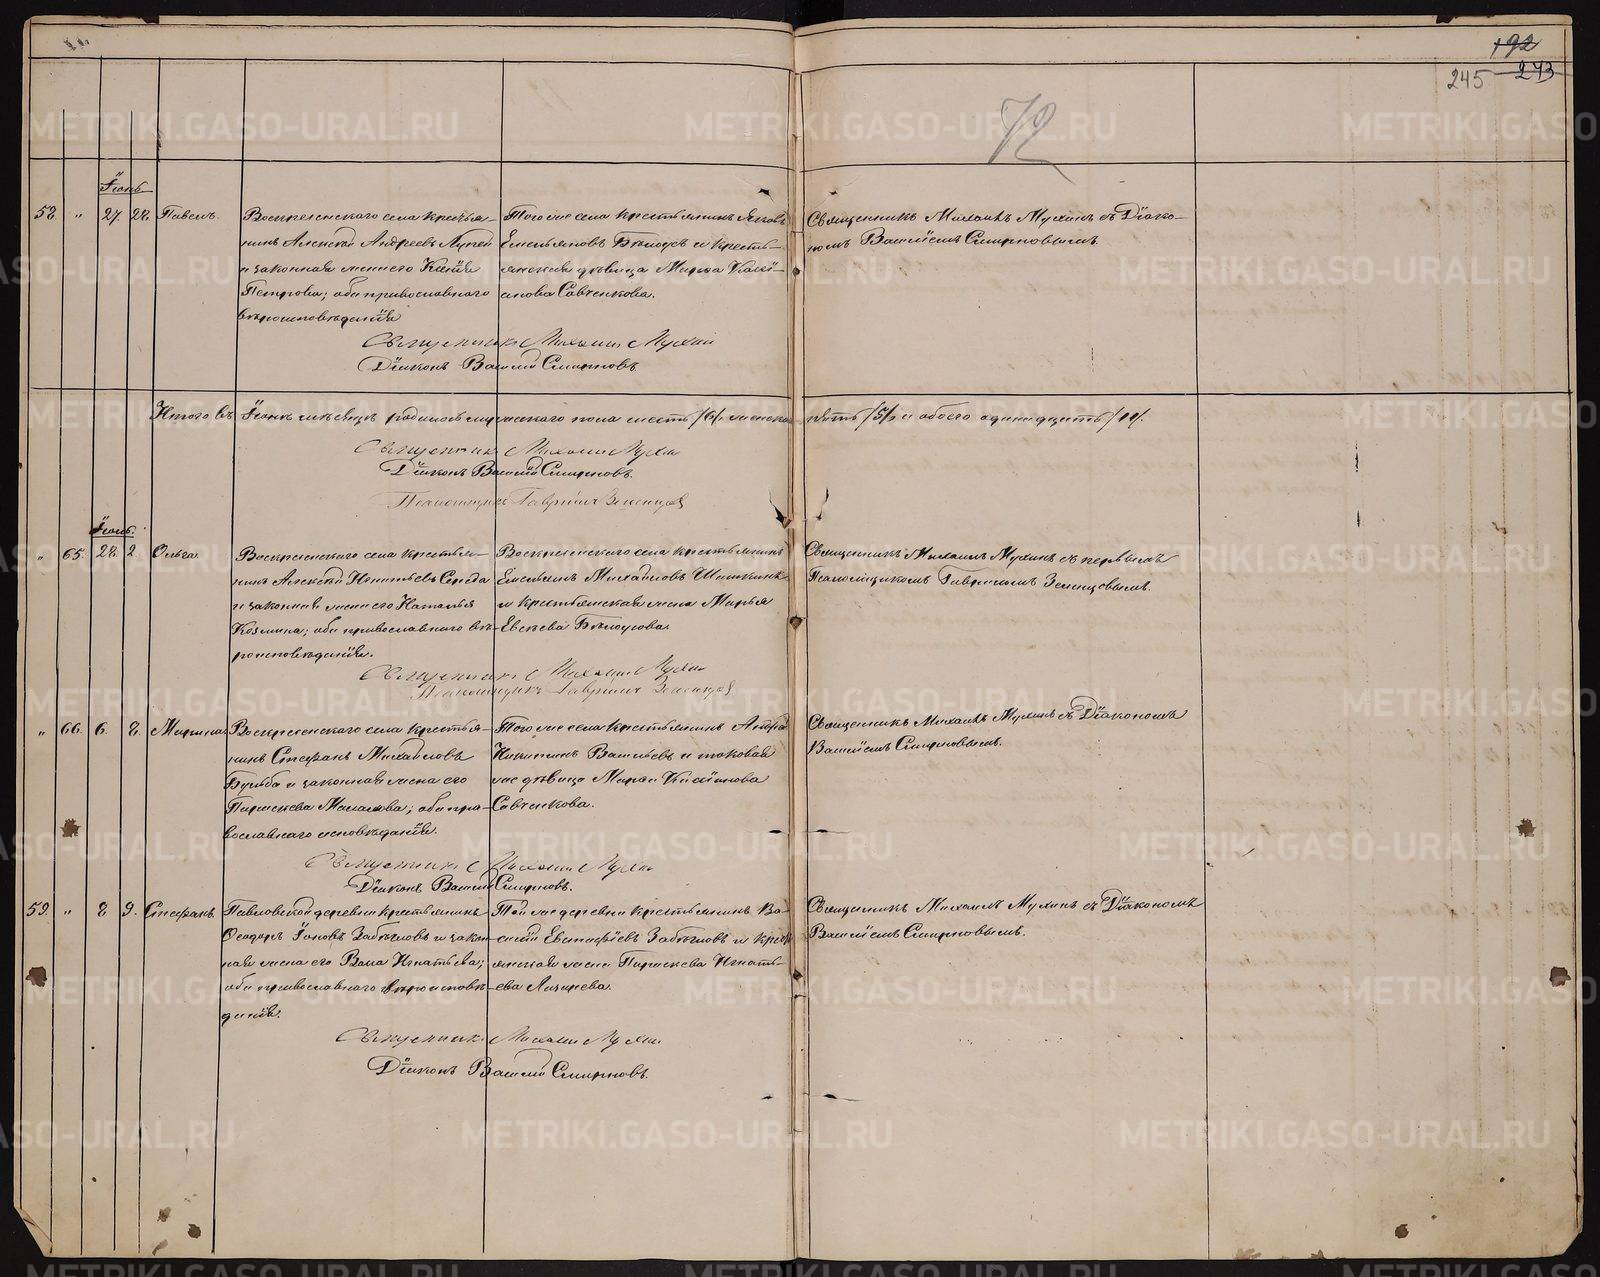 192
245 273
72
Іюнь
58. " 27. 28. Павелъ.
Воскресенскаго села крестья-
нинъ Алексѣй Андреевъ
и законная жена его Ксенія
Петрова; оба православнаго
вѣроисповѣданія
Того же села крестьянинъ Яковъ
Емельяновъ Бѣлоусъ и кресть-
янская дѣвица Марѳа
Савченкова.
Священникъ Михаилъ Мухинъ съ Діако-
номъ Василіемъ Смирновымъ.
Священникъ Михаилъ Мухинъ
Діаконъ Василій Смирновъ
Итого въ Іюнѣ мѣсяцѣ родилось мужескаго пола шесть /6/, женскаго пять /5/, и обоего одинадцать /11/.
Священникъ Михаилъ Мухинъ
Діаконъ Василій Смирновъ.
Псаломщикъ Гавріилъ Зеленцовъ
" 65. 28. 2. Ольга.
Воскресенскаго села крестья-
нинъ Алексѣй Игнатьевъ Середа
и законная жена его Наталья
Козмина; оба православнаго вѣ-
роисповѣданія.
Воскресенскаго села крестьянинъ
Емельянъ Михайловъ Шишкинъ
и крестьянская жена Марья
Евсѣева Бѣлоусова.
Священникъ Михаилъ Мухинъ съ первымъ
Псаломщикомъ Гавріиломъ Зеленцовымъ.
Священникъ Михаилъ Мухинъ
Псаломщикъ Гавріилъ Зеленцовъ
" 66. 6. 8. Марина
Воскресенскаго села крестья-
нинъ Стефанъ Михайловъ
и законная жена его
Параскева; оба пра-
вославнаго исповѣданія.
Того же села крестьянинъ Андрей
Никитинъ Васильевъ и таковая
же дѣвица
Савченкова.
Священникъ Михаилъ Мухинъ съ Діакономъ
Василіемъ Смирновымъ.
Священникъ Михаилъ Мухинъ
Діаконъ Василій Смирновъ.
59. " 8 9. Стефанъ.
Павловской деревни крестьянинъ
Ѳеодоръ Іоновъ Забѣгловъ и закон-
ная жена его Васса Игнатьева;
оба православнаго вѣроисповѣ-
данія.
Той же деревни крестьянинъ Ва-
силій Евстафіевъ Забѣгловъ и кресть-
янская жена Параскева Игнать-
ева Лазарева.
Священникъ Михаилъ Мухинъ съ Діакономъ
Василіемъ Смирновымъ.
Священникъ Михаилъ Мухинъ
Діаконъ Василій Смирновъ.
METRIKI.GASO-URAL.RU